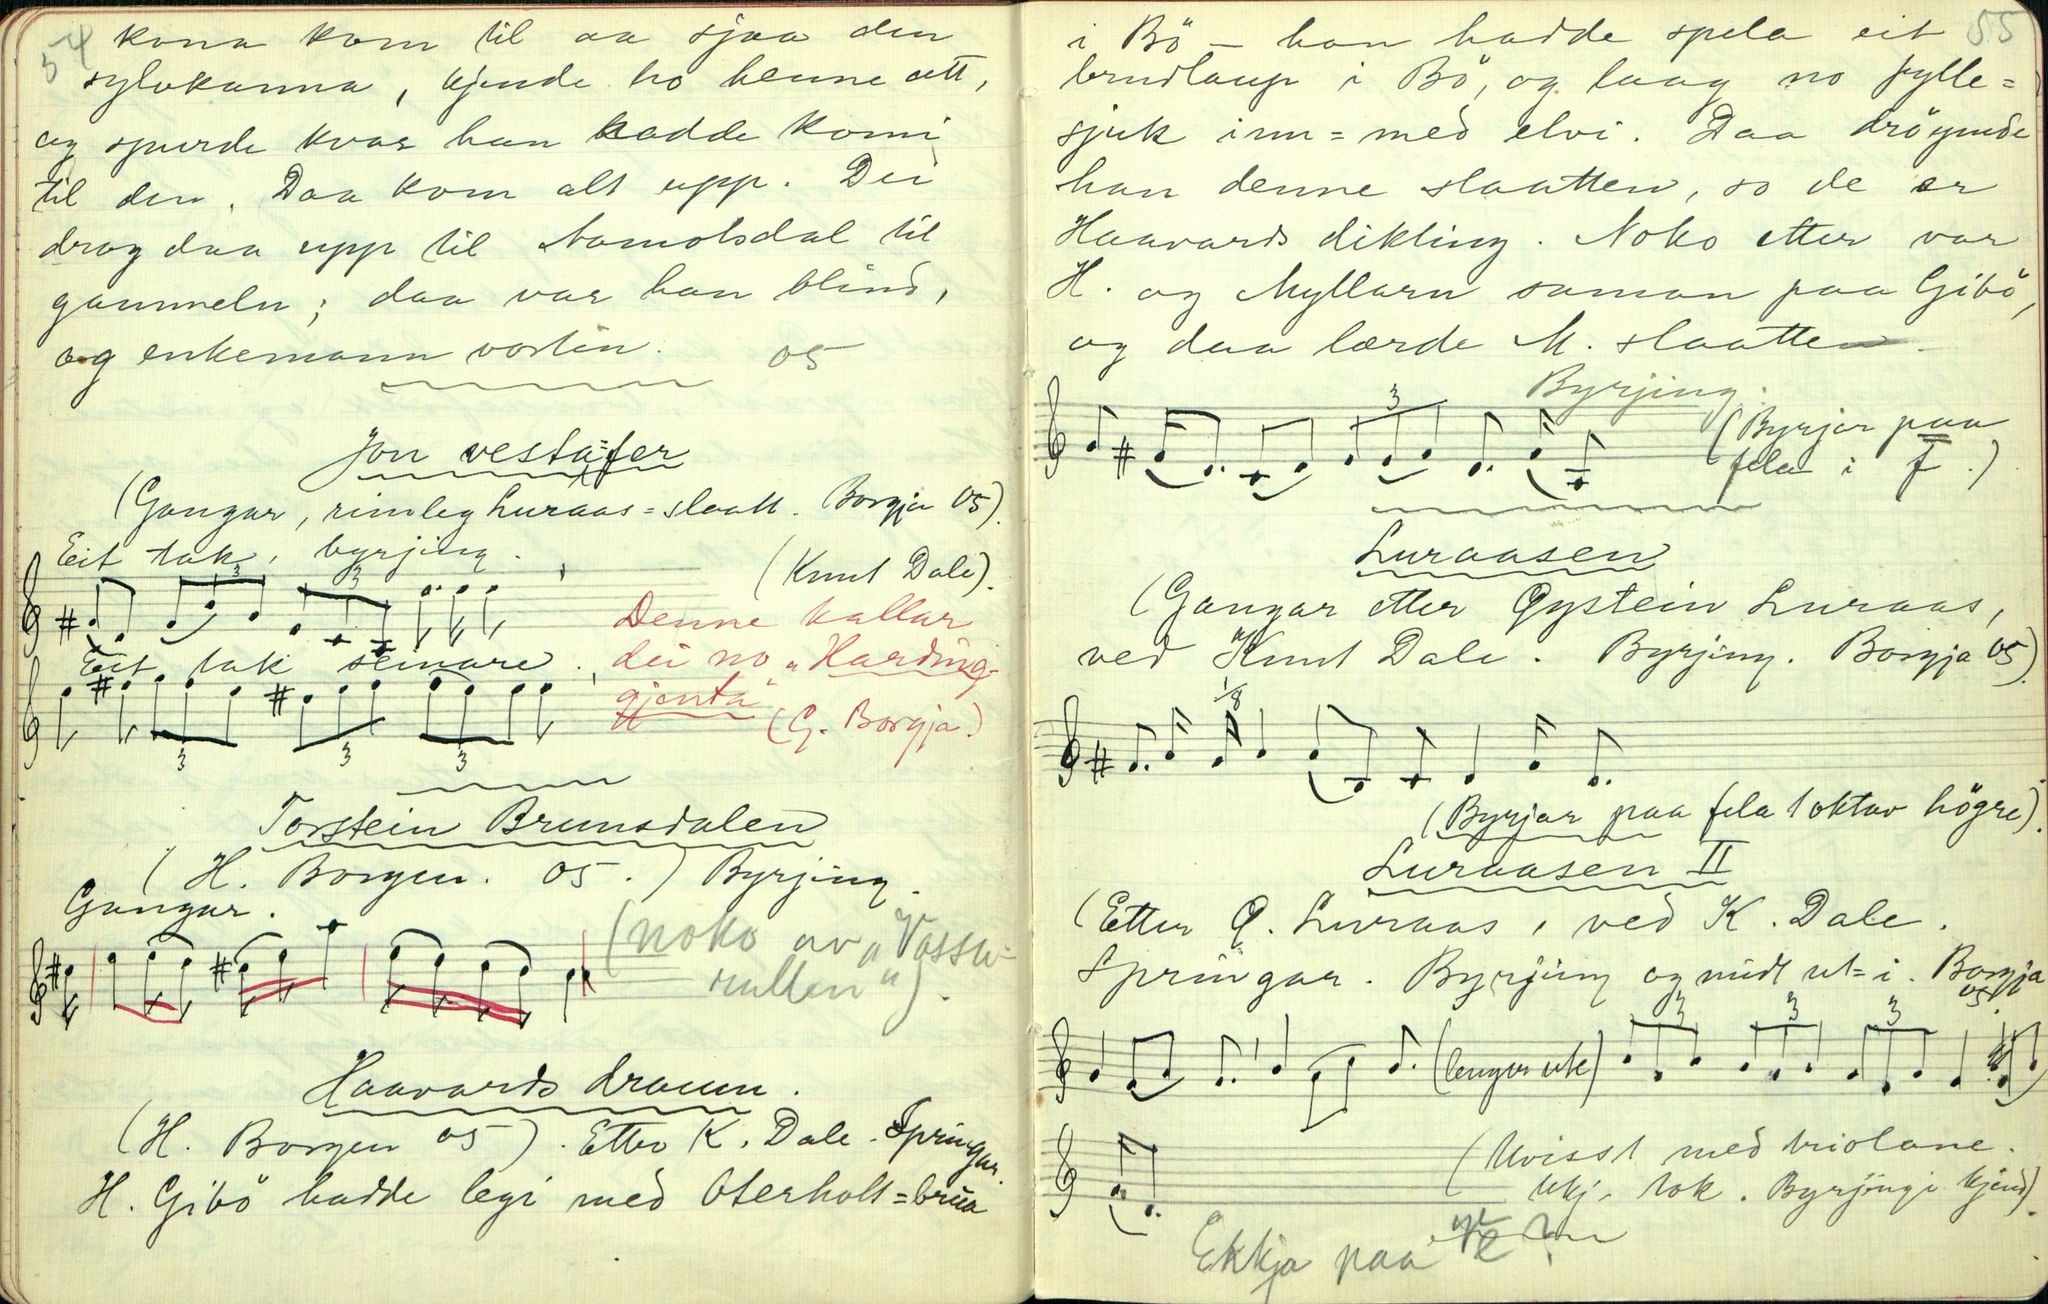 54
kona kom til aa sjaa den
sylvkanna, kjende ho henne att,
og spurde kvar han hadde komi
til den. Daa kom alt upp. Dei
drog daa upp til Aamotsdal til
gammeln; daa var han blind,
og enkemann vorten. 05
Jon vestafer
(Gangar, rimleg Luraas-slaatt. Borgja 05).
Eit tak, byrjing.
(Knut Dale).
3 3
Denne kallar
dei no "Harding-
gjenta"
(G. Borgja.)
Eit tak seinare.
3 3 3
Torstein Brunsdalen
(H. Borgen. 05.) Byrjing.
Gangar.
(noko av "Vossa-
rullen").
Haavards draum.
(H. Borgen 05). Etter K. Dale. Springar.
H. Gibö hadde legi med Oterholt-brua
55
i Bö – han hadde spela eit
brudlaup i Bö, og laag no fylle-
sjuk inn-med elvi. Daa dröymde
han denne slaatten, so de er
Haavards dikting. Noko etter var
H. og Myllarn saman paa Gibö,
og daa lærde M. slaatten.
Byrjing.
3
(Byrjar paa
fela i f.)
Luraasen
(Gangar etter Øystein Luraas,
ved Knut Dale. Byrjing. Borgja 05)
1/8
(Byrjar paa fela 1 oktav högre).
Luraasen II
(Etter Ø. Luraas, ved K. Dale.
Springar. Byrjing og midt ut-i. Borgja
05)
(lenger ute)
3 3 3
(Uvisst med triolane.
Ukj. tak. Byrjingi kjend).
Ekkja paa